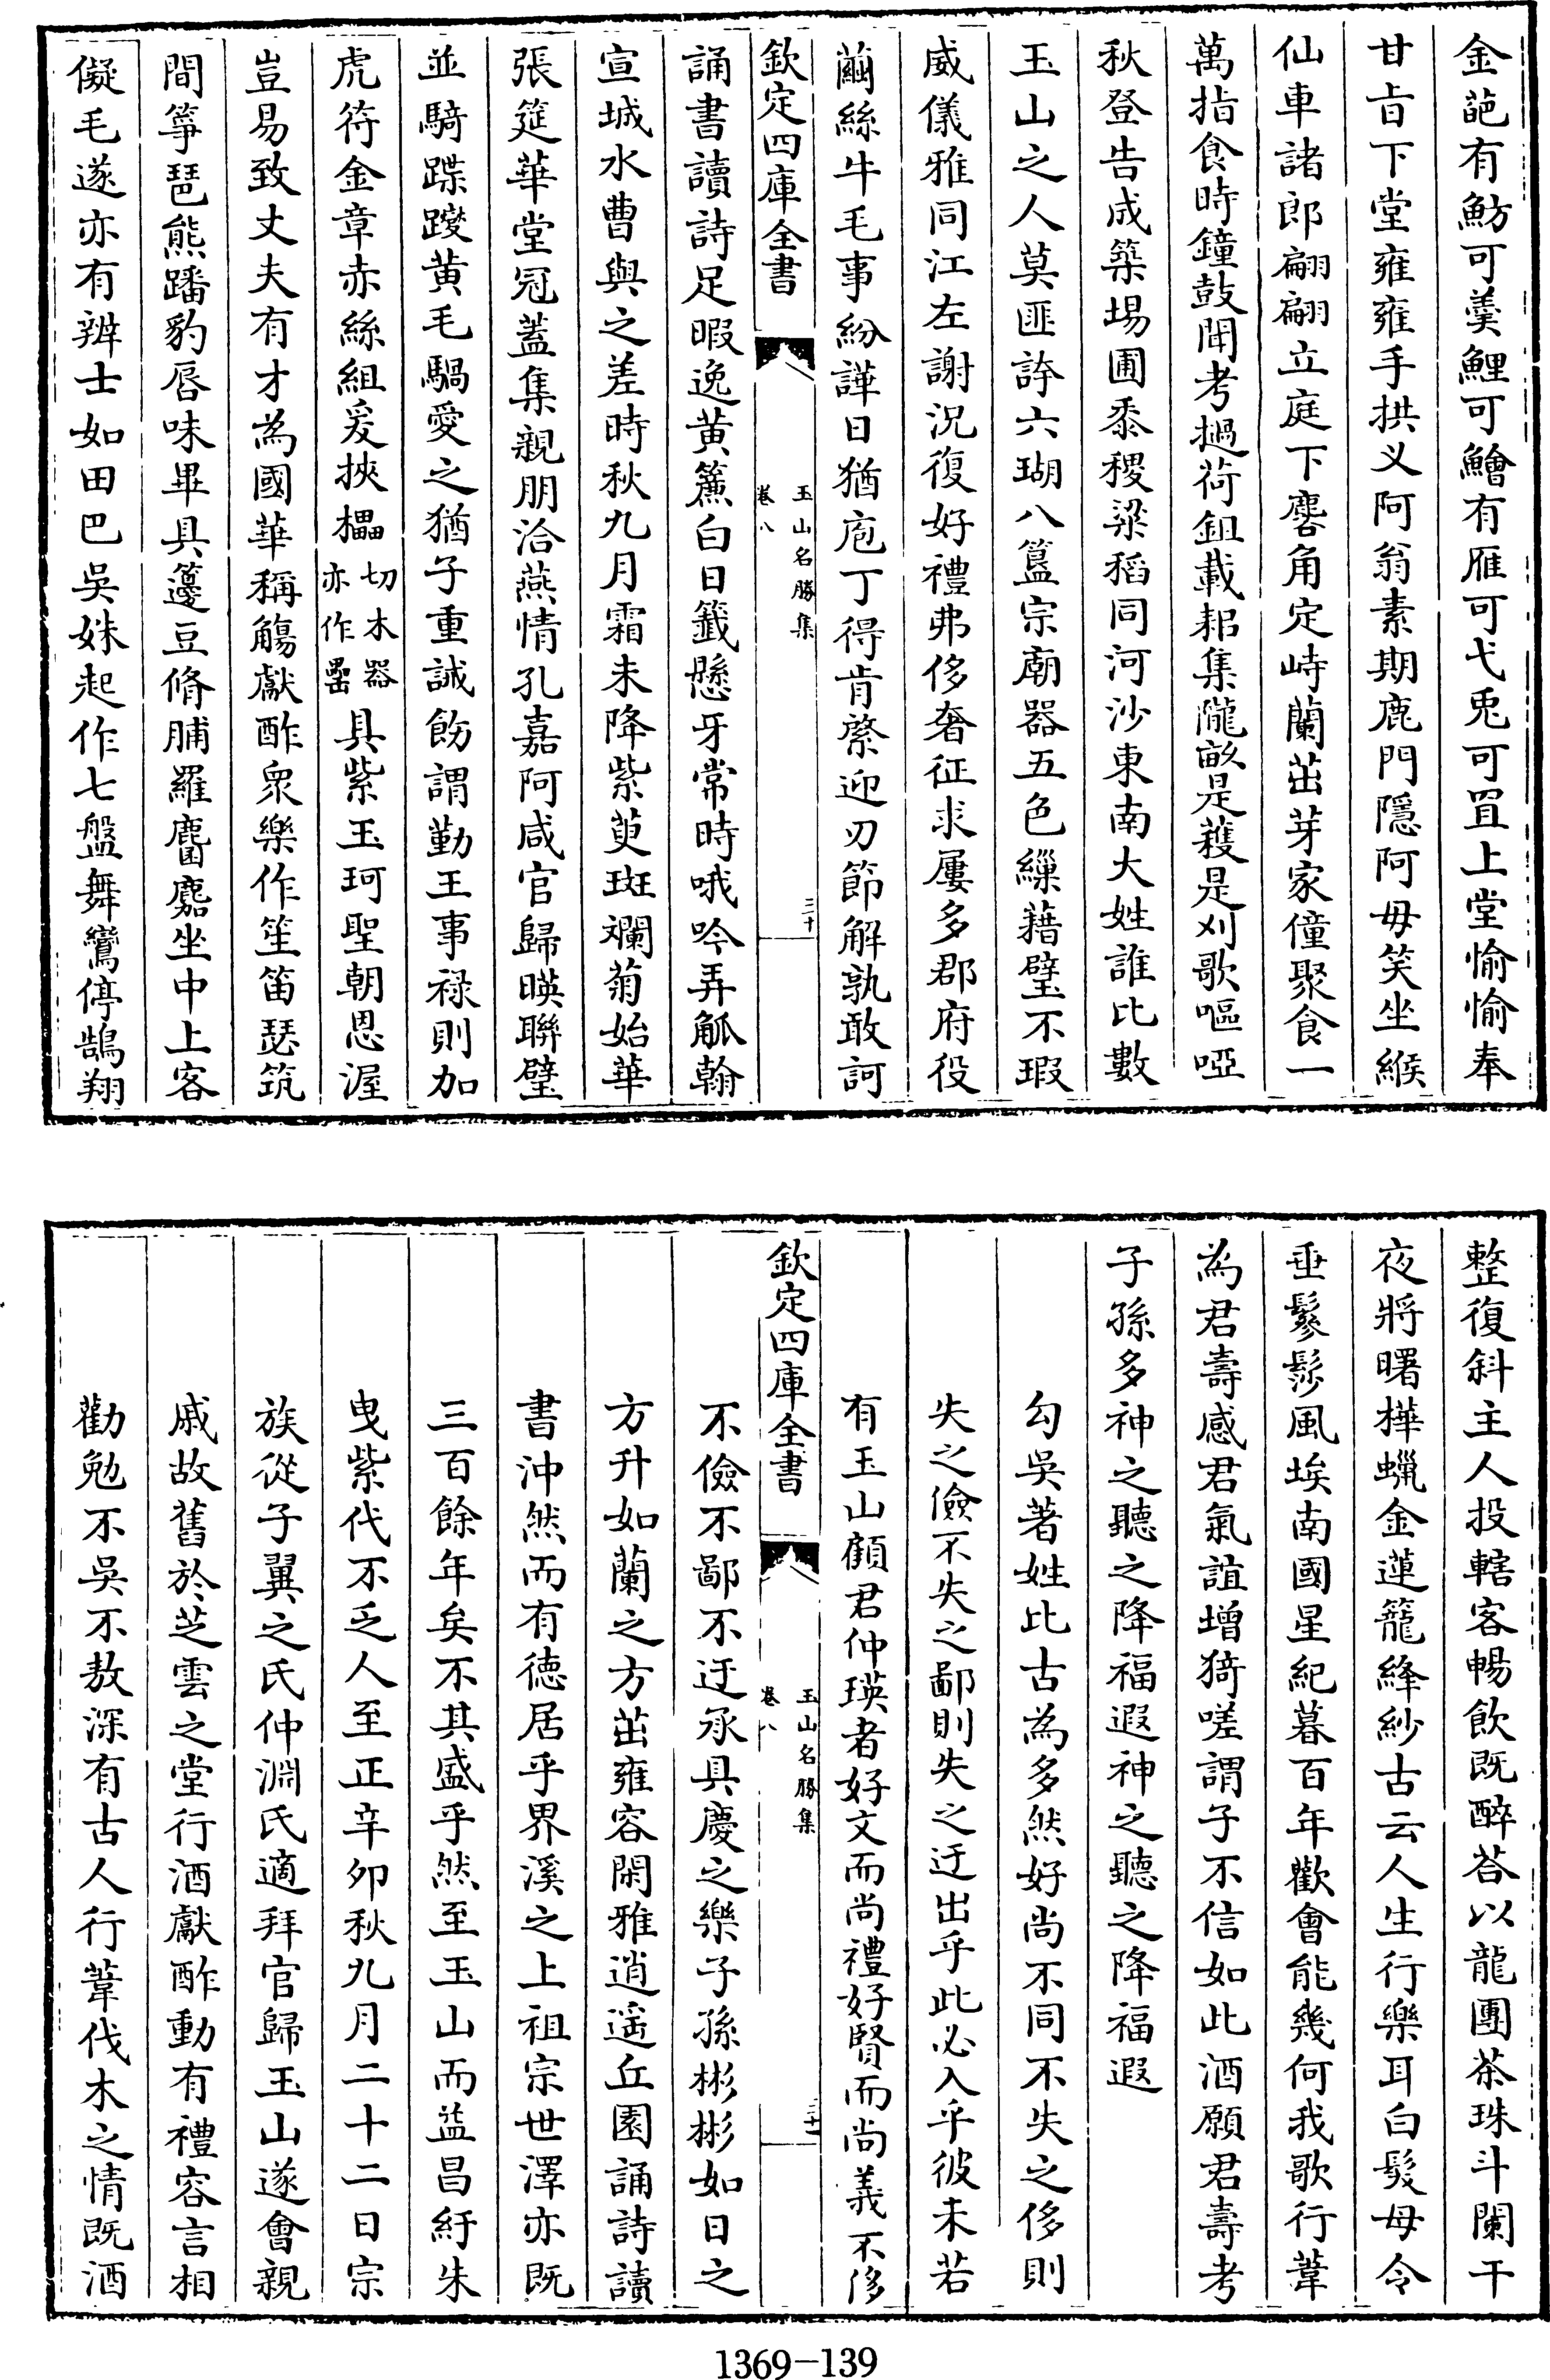 金葩有魴可羮鯉可鱠有雁可弋兎可罝上堂愉愉奉
甘㫖下堂雍雍手拱义阿翁素期鹿門隱阿毋笑坐緱
仙車諸郎翩翩立庭下麐角定峙蘭茁芽家僮聚食一
萬指食時鐘鼓聞考撾荷鉏載耜集隴畝是蔟是刈歌嘔啞
秋登告成築場圃黍稷粱稻同河沙東南大姓誰比數
玉山之人莫匪誇六瑚八簋宗廟器五色繅藉璧不瑕
威儀雅同江左謝況復好禮弗侈奢征求屢多郡府役
繭絲牛毛事紛譁日猶庖丁得肯綮迎刃節解孰敢訶
欽定四庫全書
玉山名勝集
卷八
三十
誦書讀詩足暇逸黄簾白日籤懸牙常時哦吟弄觚翰
宣城水曹與之差時秋九月霜未降紫萸斑斕菊始華
張筵華堂冠蓋集親朋洽燕情孔嘉阿咸官歸暎聯璧
並騎蹀躞黄毛騧愛之猶子重誡飭謂勤王事禄則加
虎符金章赤絲組爰挾櫑切木器亦作罍具紫玉珂聖朝恩渥
豈易致丈夫有才為國華稱觴獻酢衆樂作笙笛瑟筑
間箏琶熊蹯豹唇味畢具籩豆脩脯羅麕麚坐中上客
儗毛遂亦有辨士如田巴吳姝起作七盤舞鸞停鵠翔
整復斜主人投轄客暢飲既醉荅以龍團茶珠斗闌干
夜將曙樺蠟金蓮籠絳紗古云人生行樂耳白髮毋令
垂鬖髿風埃南國星紀暮百年歡會能幾何我歌行葦
為君壽感君氣誼增猗嗟謂子不信如此酒願君壽考
子孫多神之聽之降福遐神之聽之降福遐
勾吳著姓比古為多然好尚不同不失之侈則
失之儉不失之鄙則失之迂出乎此必入乎彼未若
有玉山顧君仲瑛者好文而尚禮好賢而尚義不侈
欽定四庫全書
玉山名勝集
卷八
三十一
不儉不鄙不迂承具慶之樂子孫彬彬如日之
方升如蘭之方茁雍容閑雅逍遥丘園誦詩讀
書沖然而有徳居乎界溪之上祖宗世澤亦既
三百餘年矣不其盛乎然至玉山而益昌紆朱
曳紫代不乏人至正辛卯秋九月二十二日宗
族從子翼之氏仲淵氏適拜官歸玉山遂會親
戚故舊於芝雲之堂行酒獻酢動有禮容言相
勸勉不吳不敖深有古人行葦伐木之情既酒
1369－139